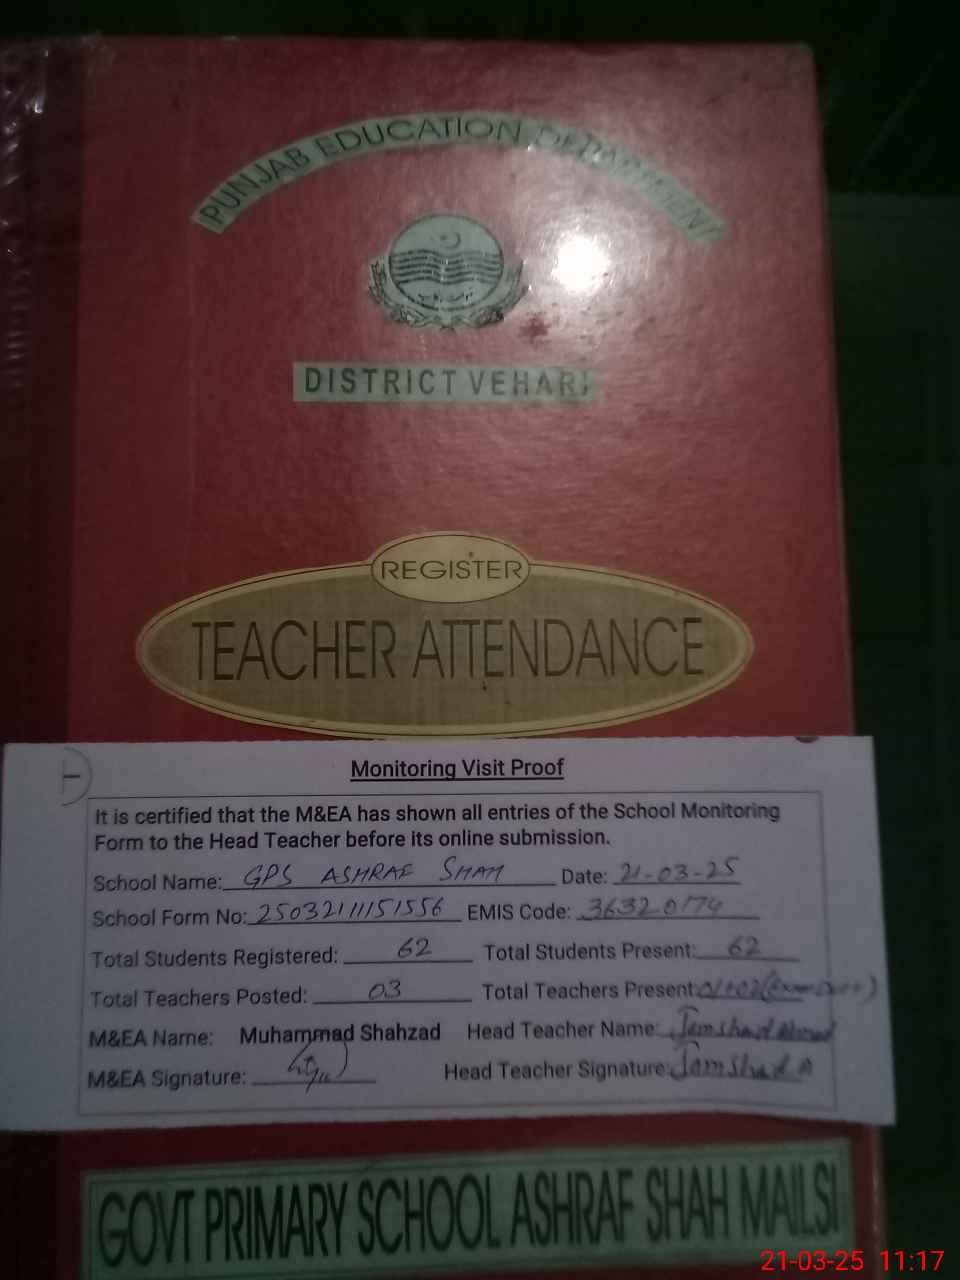 PUNJAB EDUCATION DEPARTMENT
DISTRICT VEHARI
REGISTER
TEACHER ATTENDANCE
Monitoring Visit Proof
It is certified that the M&EA has shown all entries of the School Monitoring
Form to the Head Teacher before its online submission.
School Name: GPS ASHRAF SHAH Date: 21-03-25
School Form No: 25032111151556 EMIS Code: 36320174
Total Students Registered: 62 Total Students Present: 62
Total Teachers Posted: 03 Total Teachers Present: 01+02 (Exam Duty)
M&EA Name: Muhammad Shahzad Head Teacher Name: Jamshad Ahmad
M&EA Signature: Head Teacher Signature: Jamshad A
GOVT PRIMARY SCHOOL ASHRAF SHAH MAILSI
21-03-25 11:17